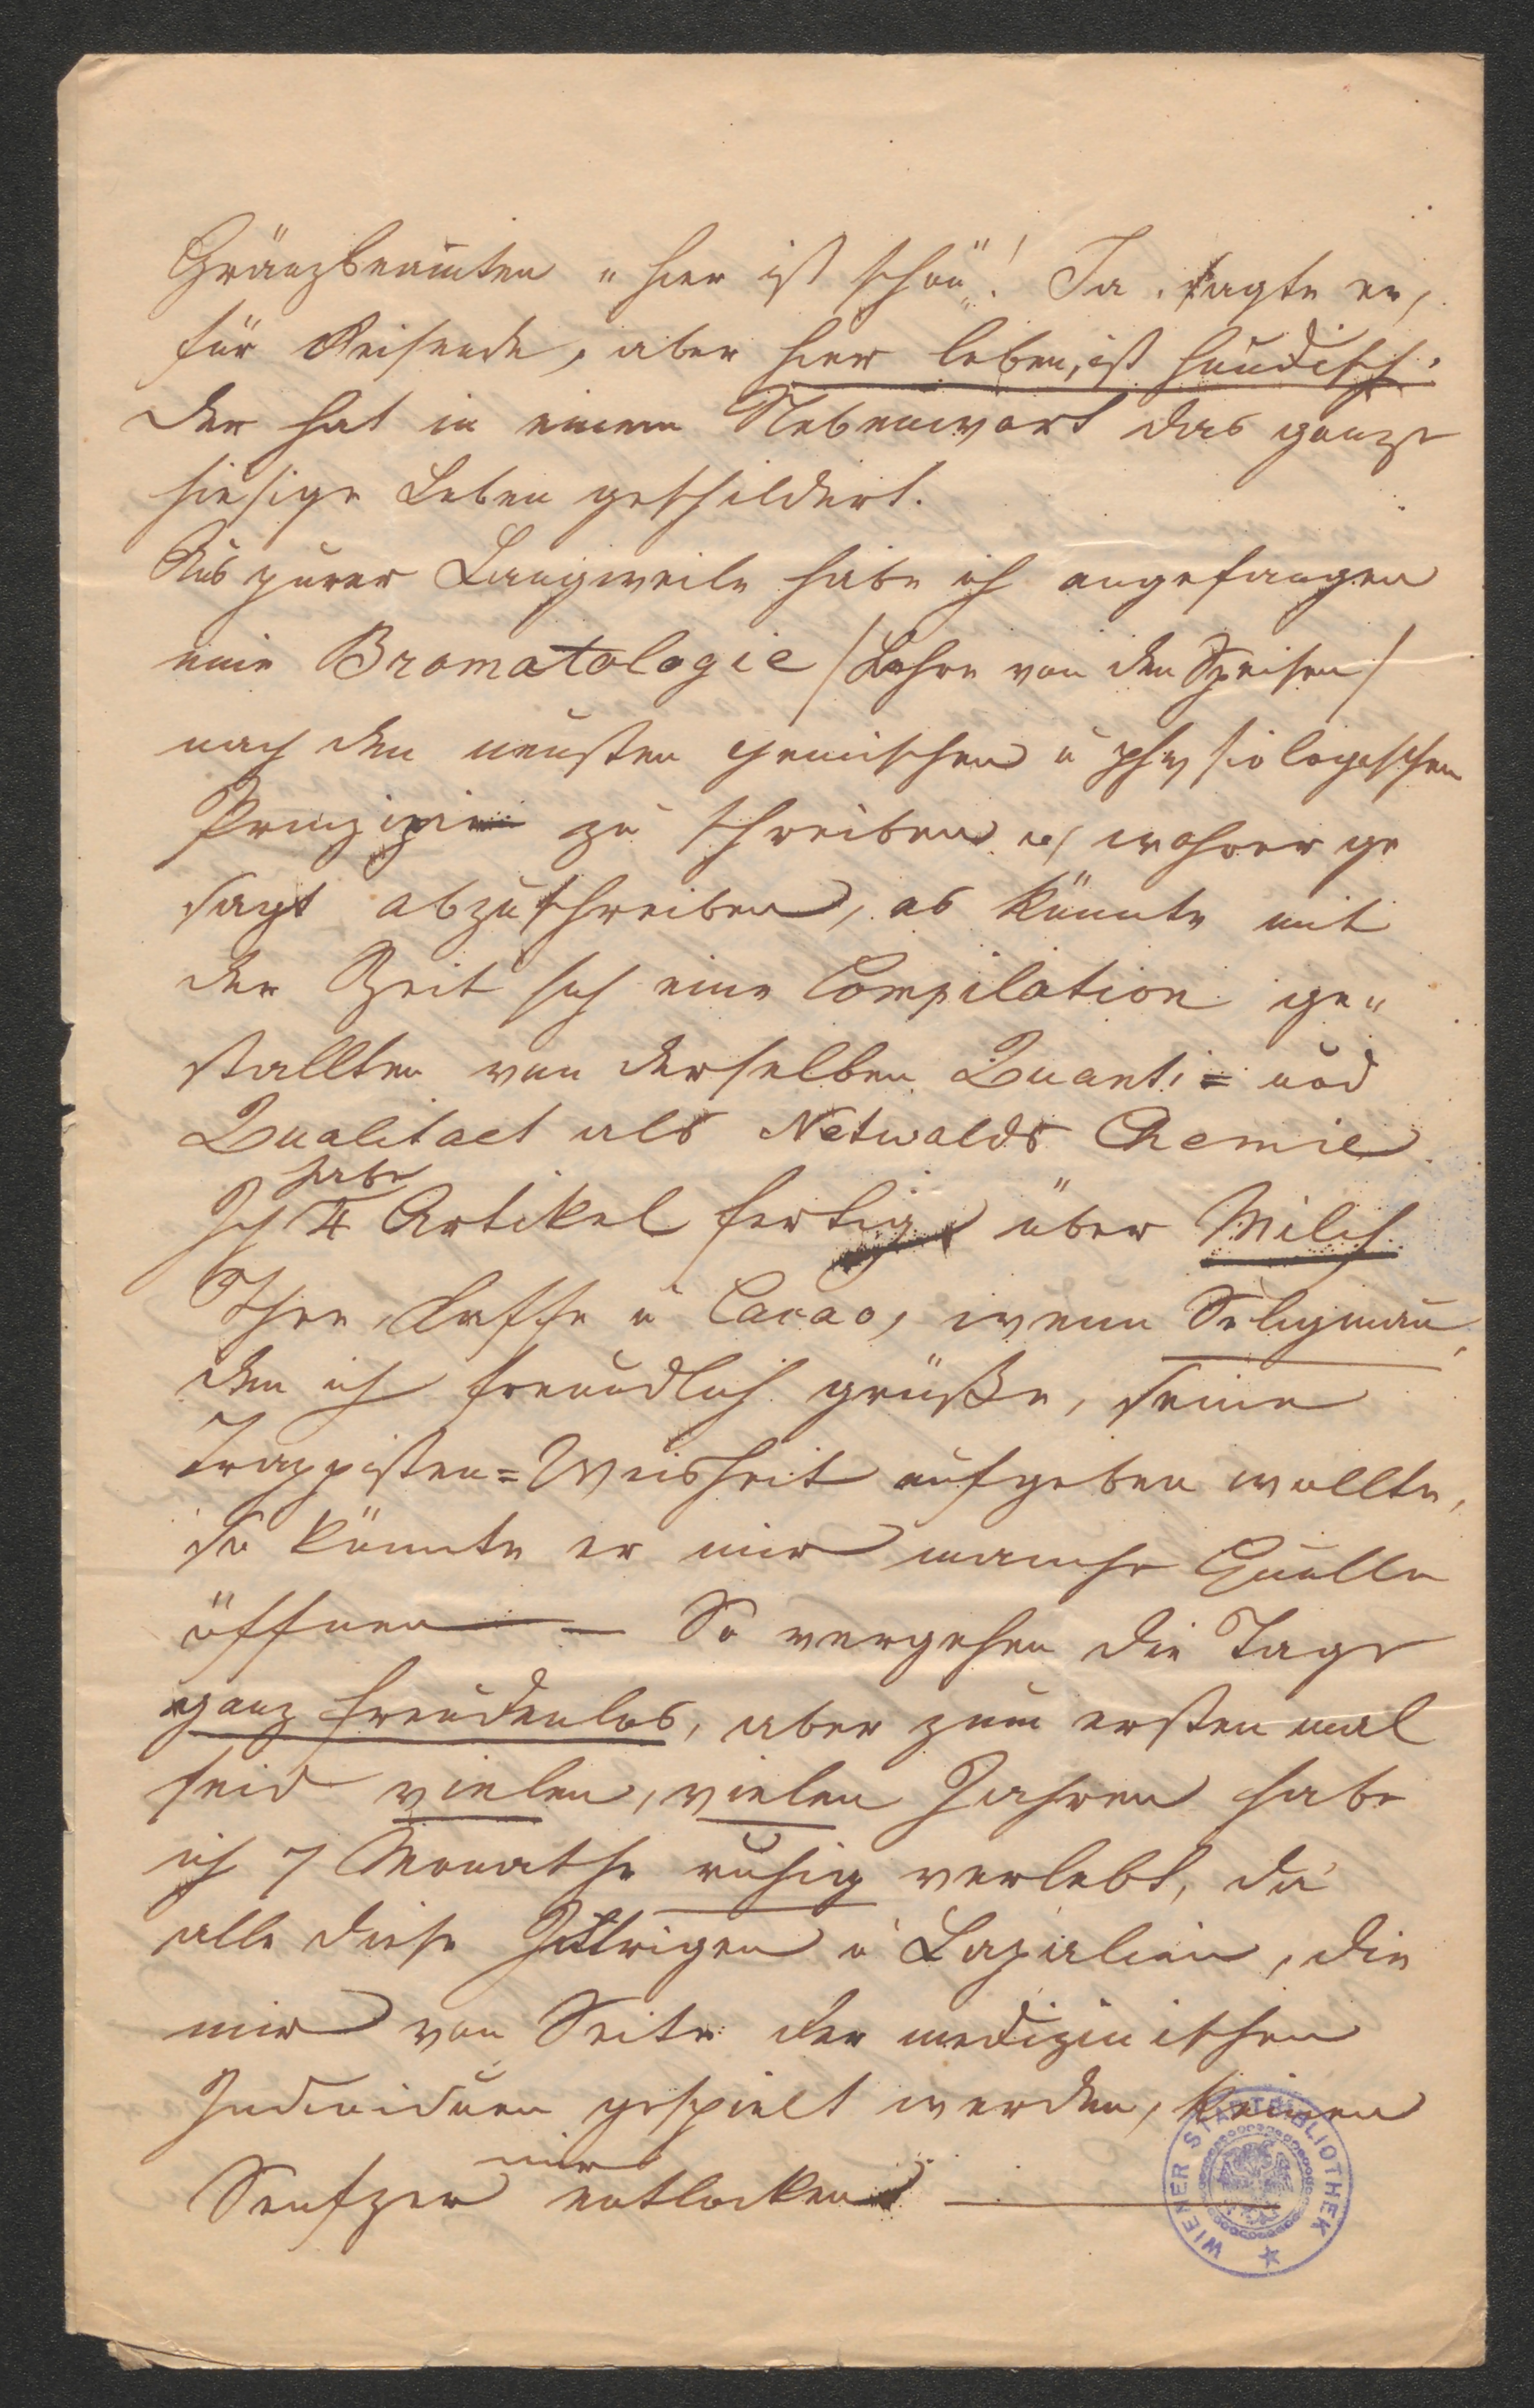 Gränzbeamten „hier ist schön"! Ja, sagte er,
für Reisende, aber hier leben, ist hündisch.
Der hat in einem Nebenwort das ganze
hiesige Leben geschildert.
Aus purer Langweile habe ich angefangen
eine Bromatologie /Lehre von den Speisen/
nach den neusten chemischen u physiologischen
Prinzipien zu schreiben o/ wahrer ge
sagt abzuschreiben, es könnte mit
der Zeit sich eine Compilation ge„
stallten von derselben Quanti= und
Qualitaet als Netwalds Chemie
habe
Ich 4 Artikel fertig über Milch
Thee, Kaffe u Cacao, wenn Seligman̄,
den ich freundlich grüße, seine
Trappisten=Weisheit aufgeben wollte,
so könnte er mir manche Quelle
öffnen — So vergehen die Tage
ganz freudenlos, aber zum ersten mal
seid vielen, vielen Jahren habe
ich 7 Monathe ruhig verlebt, da
alle diese Intrigen u Lapalien, die
mir von Seite der medizinischen
Individuen gespielt werden, keinen
mir
Seufzer entlocken —
WIENER STADTBIBLIOTHEK